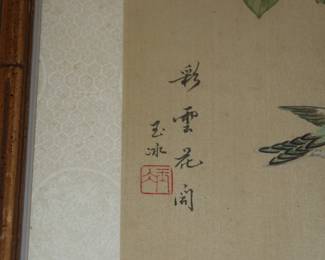 彩雲花間
玉冰